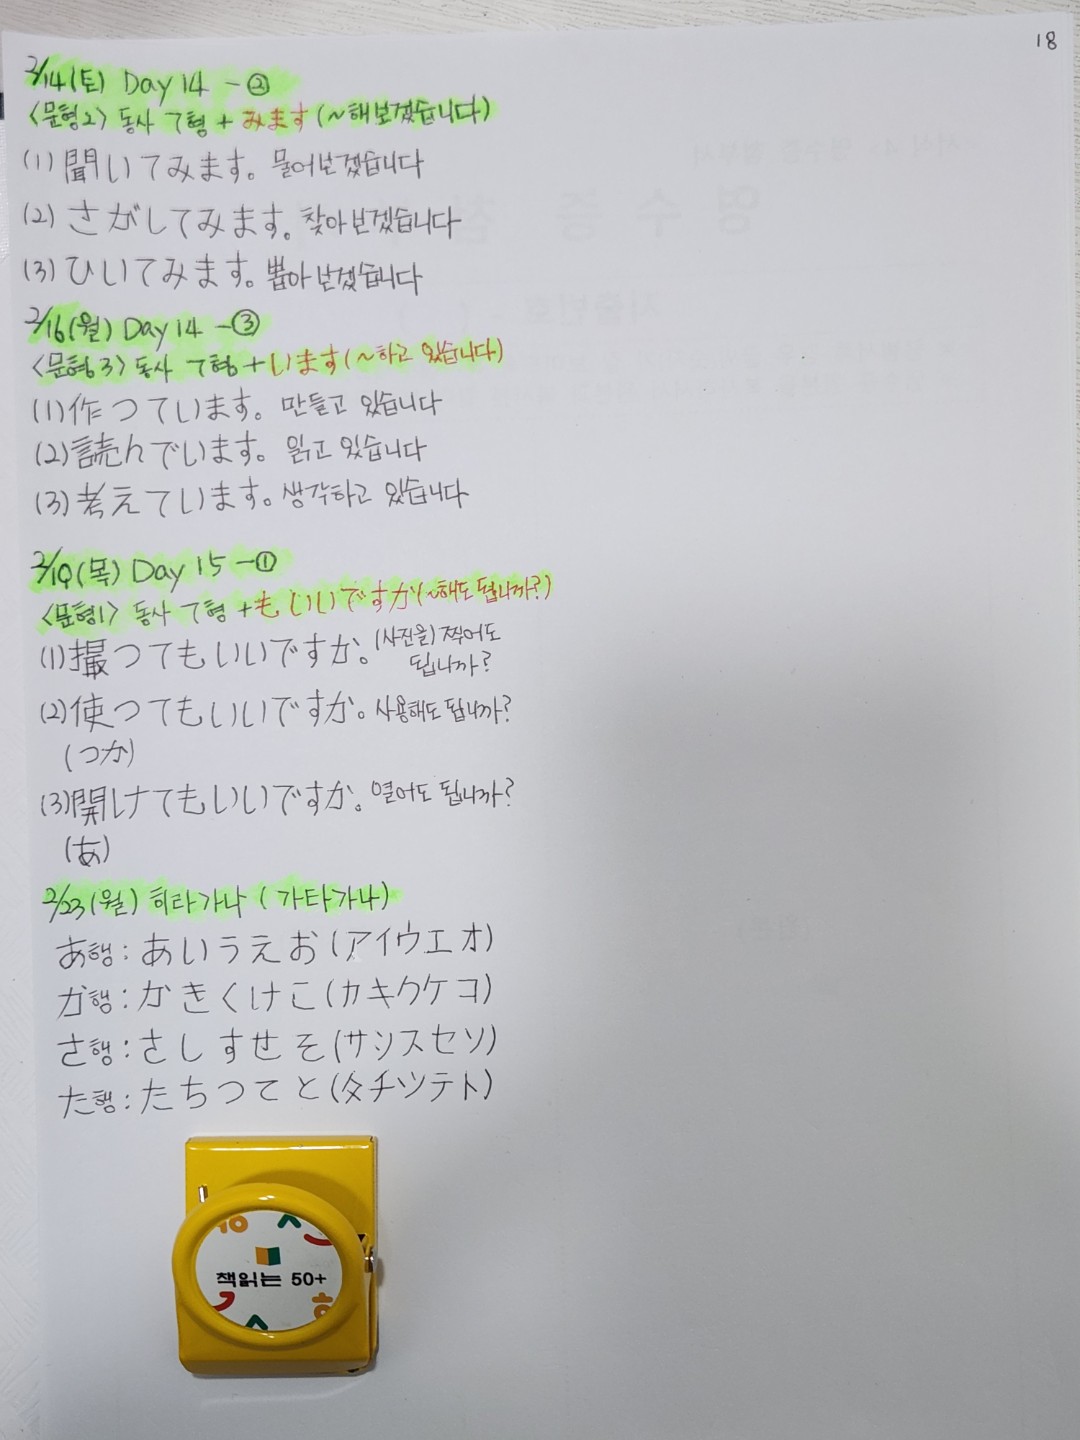 18
2/14(토) Day 14 - ②
<문형2> 동사 て형 + みます (~해보겠습니다)
(1) 聞いてみます。 물어보겠습니다
(2) さがしてみます。 찾아보겠습니다
(3) ひいてみます。 뽑아보겠습니다
2/16(월) Day 14 - ③
<문형3> 동사 て형 + います (~하고 있습니다)
(1) 作つています。 만들고 있습니다
(2) 読んでいます。 읽고 있습니다
(3) 考えています。 생각하고 있습니다
2/19(목) Day 15 - ①
<문형1> 동사 て형 + もいいですか (~해도 됩니까?)
(1) 撮つてもいいですか。 (사진을) 찍어도
됩니까?
(2) 使つてもいいですか。 사용해도 됩니까?
(つか)
(3) 開けてもいいですか。 열어도 됩니까?
(あ)
2/23(월) 히라가나 (가타가나)
あ행 : あいうえお (アイウエオ)
か행 : かきくけこ (カキクケコ)
さ행 : さしすせそ (サシスセソ)
た행 : たちつてと (タチツテト)
책읽는 50+